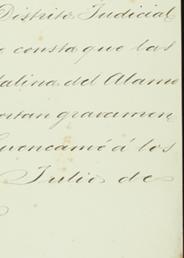 Distrito Judicial
e consta que las
Catalina del Alamo
ortan gravamen
Cuencamé á los
Julio de